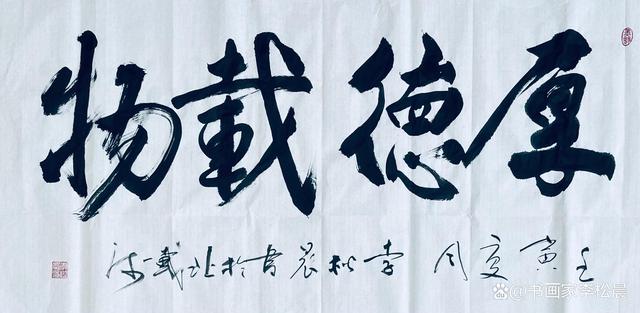 厚德載物
壬寅夏月李松晨書於北戴河
@书画家李松晨